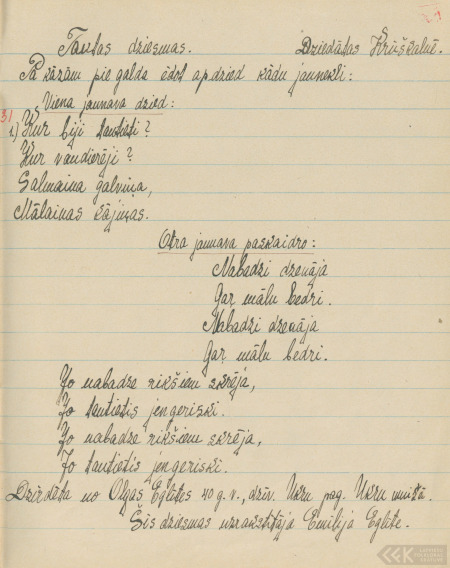 Tautas dziesmas. Dziedātas Krūškalnē.
Pa kāzām pie galda ēdot apdzied kādu jaunekli:
Viena jaunava dzied:
31
1.) Kur biji tautieti?
Kur vandierēji?
Salmaina galviņa,
Mālainas kājiņas.
Otra jaunava paskaidro:
Nabadzi dzenāja
Gar mālu bedri.
Nabadzi dzenāja
Gar mālu bedri.
Jo nabadze rikšiem skrēja,
Jo tautietis jengeriski.
Jo nabadze rikšiem skrēja,
Jo tautietis jengeriski.
Dzirdēta no Olgas Eglītes 40 g. v., dzīv. Ukru pag. Ukru muižā.
Šīs dziesmas uzrakstīja Emilija Eglīte.